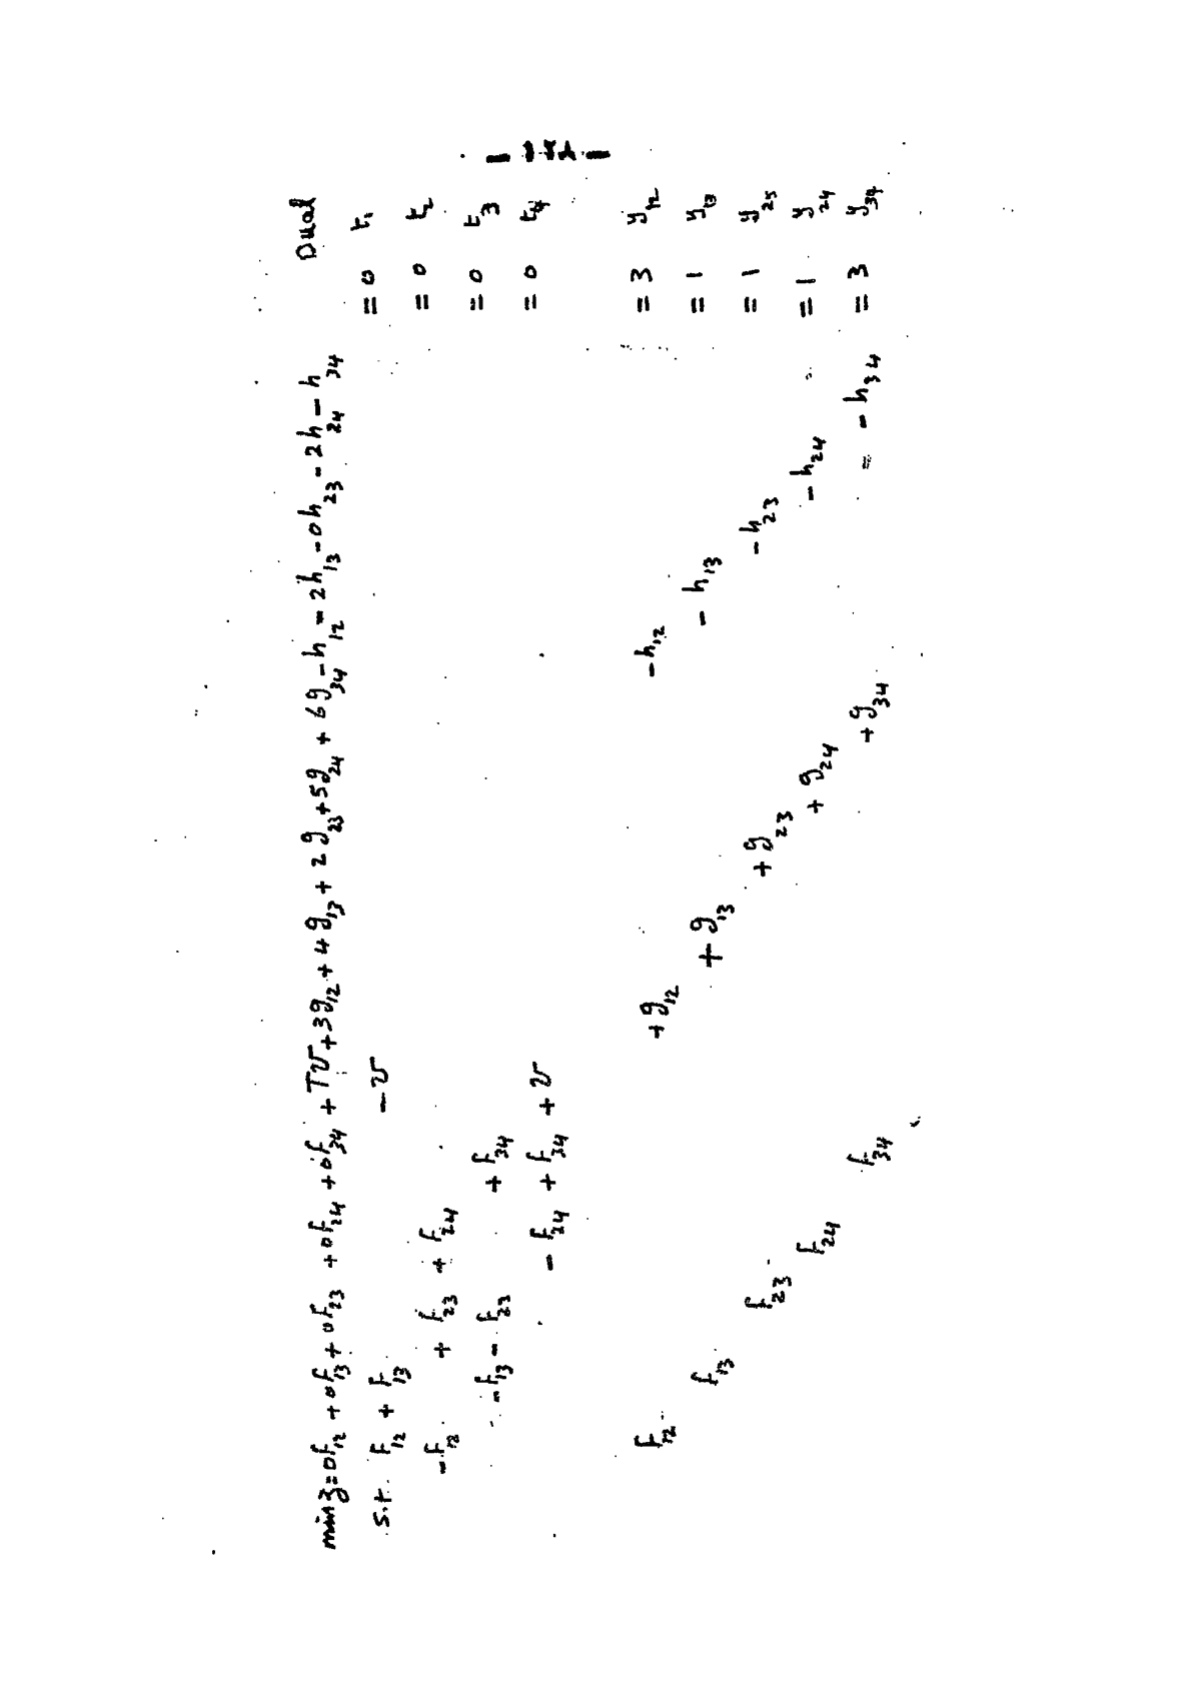 min z = 0f₁₂ + 0f₁₃ + 0f₂₃ + 0f₂₄ + 0f₃₄ + Tv + 3g₁₂ + 4g₁₃ + 2g₂₃ + 5g₂₄ + 6g₃₄ - h₁₂ - 2h₁₃ - 0h₂₃ - 2h₂₄ - h₃₄ Dual
s.t. f₁₂ + f₁₃ - v = 0 t₁
-f₁₂ + f₂₃ + f₂₄ = 0 t₂
-f₁₃ - f₂₃ + f₃₄ = 0 t₃
- f₂₄ + f₃₄ + v = 0 t₄
f₁₂ + g₁₂ - h₁₂ = 3 y₁₂
f₁₃ + g₁₃ - h₁₃ = 1 y₁₃
f₂₃ + g₂₃ - h₂₃ = 1 y₂₃
f₂₄ + g₂₄ - h₂₄ = 1 y₂₄
f₃₄ + g₃₄ = - h₃₄ = 3 y₃₄